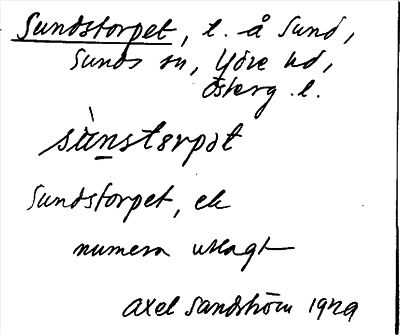 Sundstorpet, t. å Sund,
Sunds sn, Ydre hd,
Österg. l.
sùnstorpət
Sundstorpet, ek
numera utlagt
Axel Sandström 1929